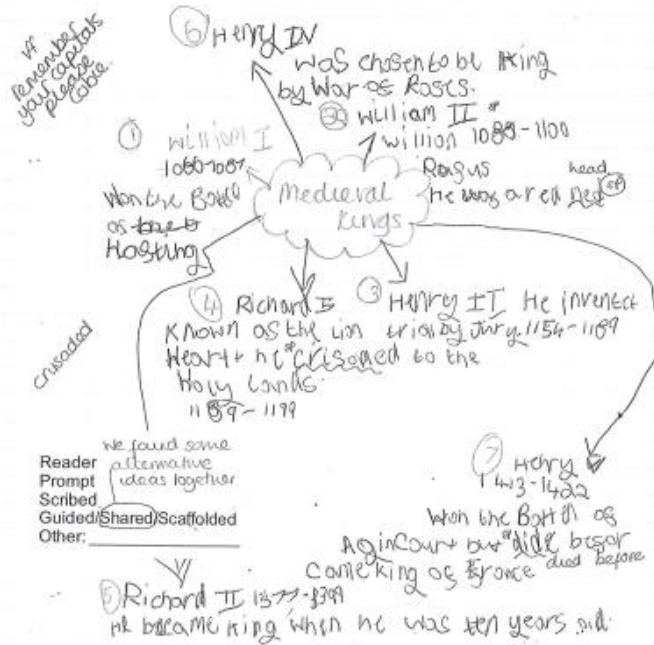 VF
remember
your capitals
please
6 Henry IV
was chosen to be King
by War of Roses.
2 William II
willion 1088-1100
Rofus
head
He was a red
1 William I
1066-1087
Won the Battel
of
Hasting
Medieval
Kings
4 Richard I
Known as the lion
Heart he crisoned to the
Holy Lands.
1189-1199
3 Henry II He invented
trial by Jury 1154-1189
crusaded
we found some
alternative
ideas together
Reader
Prompt
Scribed
Guided/Shared/Scaffolded
Other:
7 Henry V
1413-1422
Won the Battel of
Agincourt but dide befor
came king of France died before
5 Richard II 1377-1399
He became King when he was ten years old.